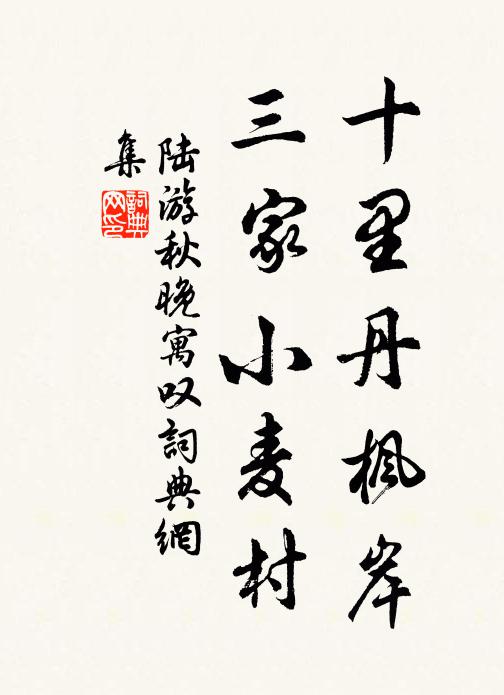 十里丹枫岸
三家小麦村
陆游秋晚寓叹詞典網
集
詞典网印